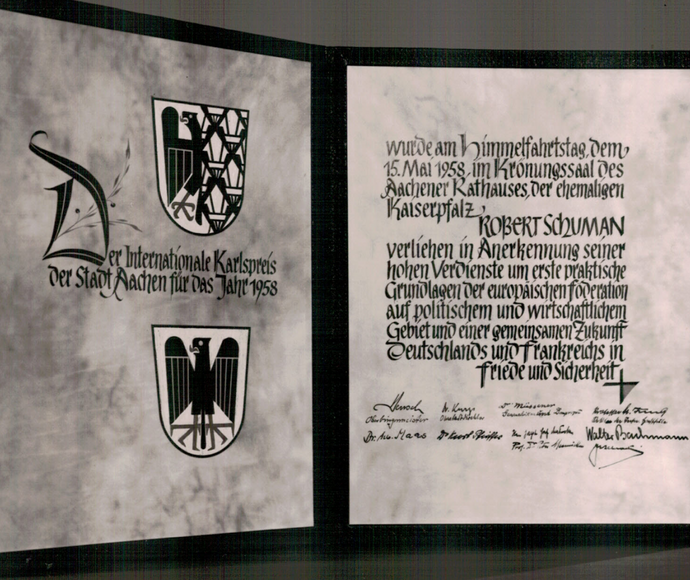 Der Internationale Karlspreis
der Stadt Aachen für das Jahr 1958
wurde am Himmelfahrtstag, dem
15. Mai 1958, im Krönungssaal des
Aachener Rathauses, der ehemaligen
Kaiserpfalz,
ROBERT SCHUMAN
verliehen in Anerkennung seiner
hohen Verdienste um erste praktische
Grundlagen der europäischen Föderation
auf politischem und wirtschaftlichem
Gebiet und einer gemeinsamen Zukunft
Deutschlands und Frankreichs in
Friede und Sicherheit
Oberbürgermeister
Maas
Walter Bachmann